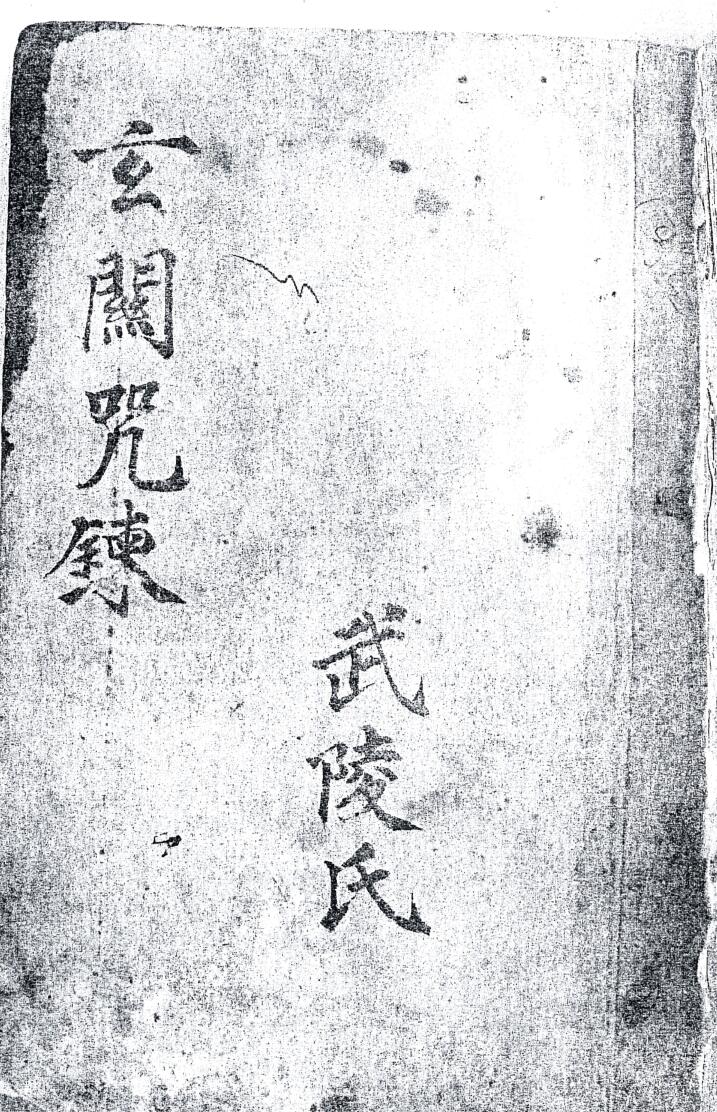 武陵氏
玄關咒鍊